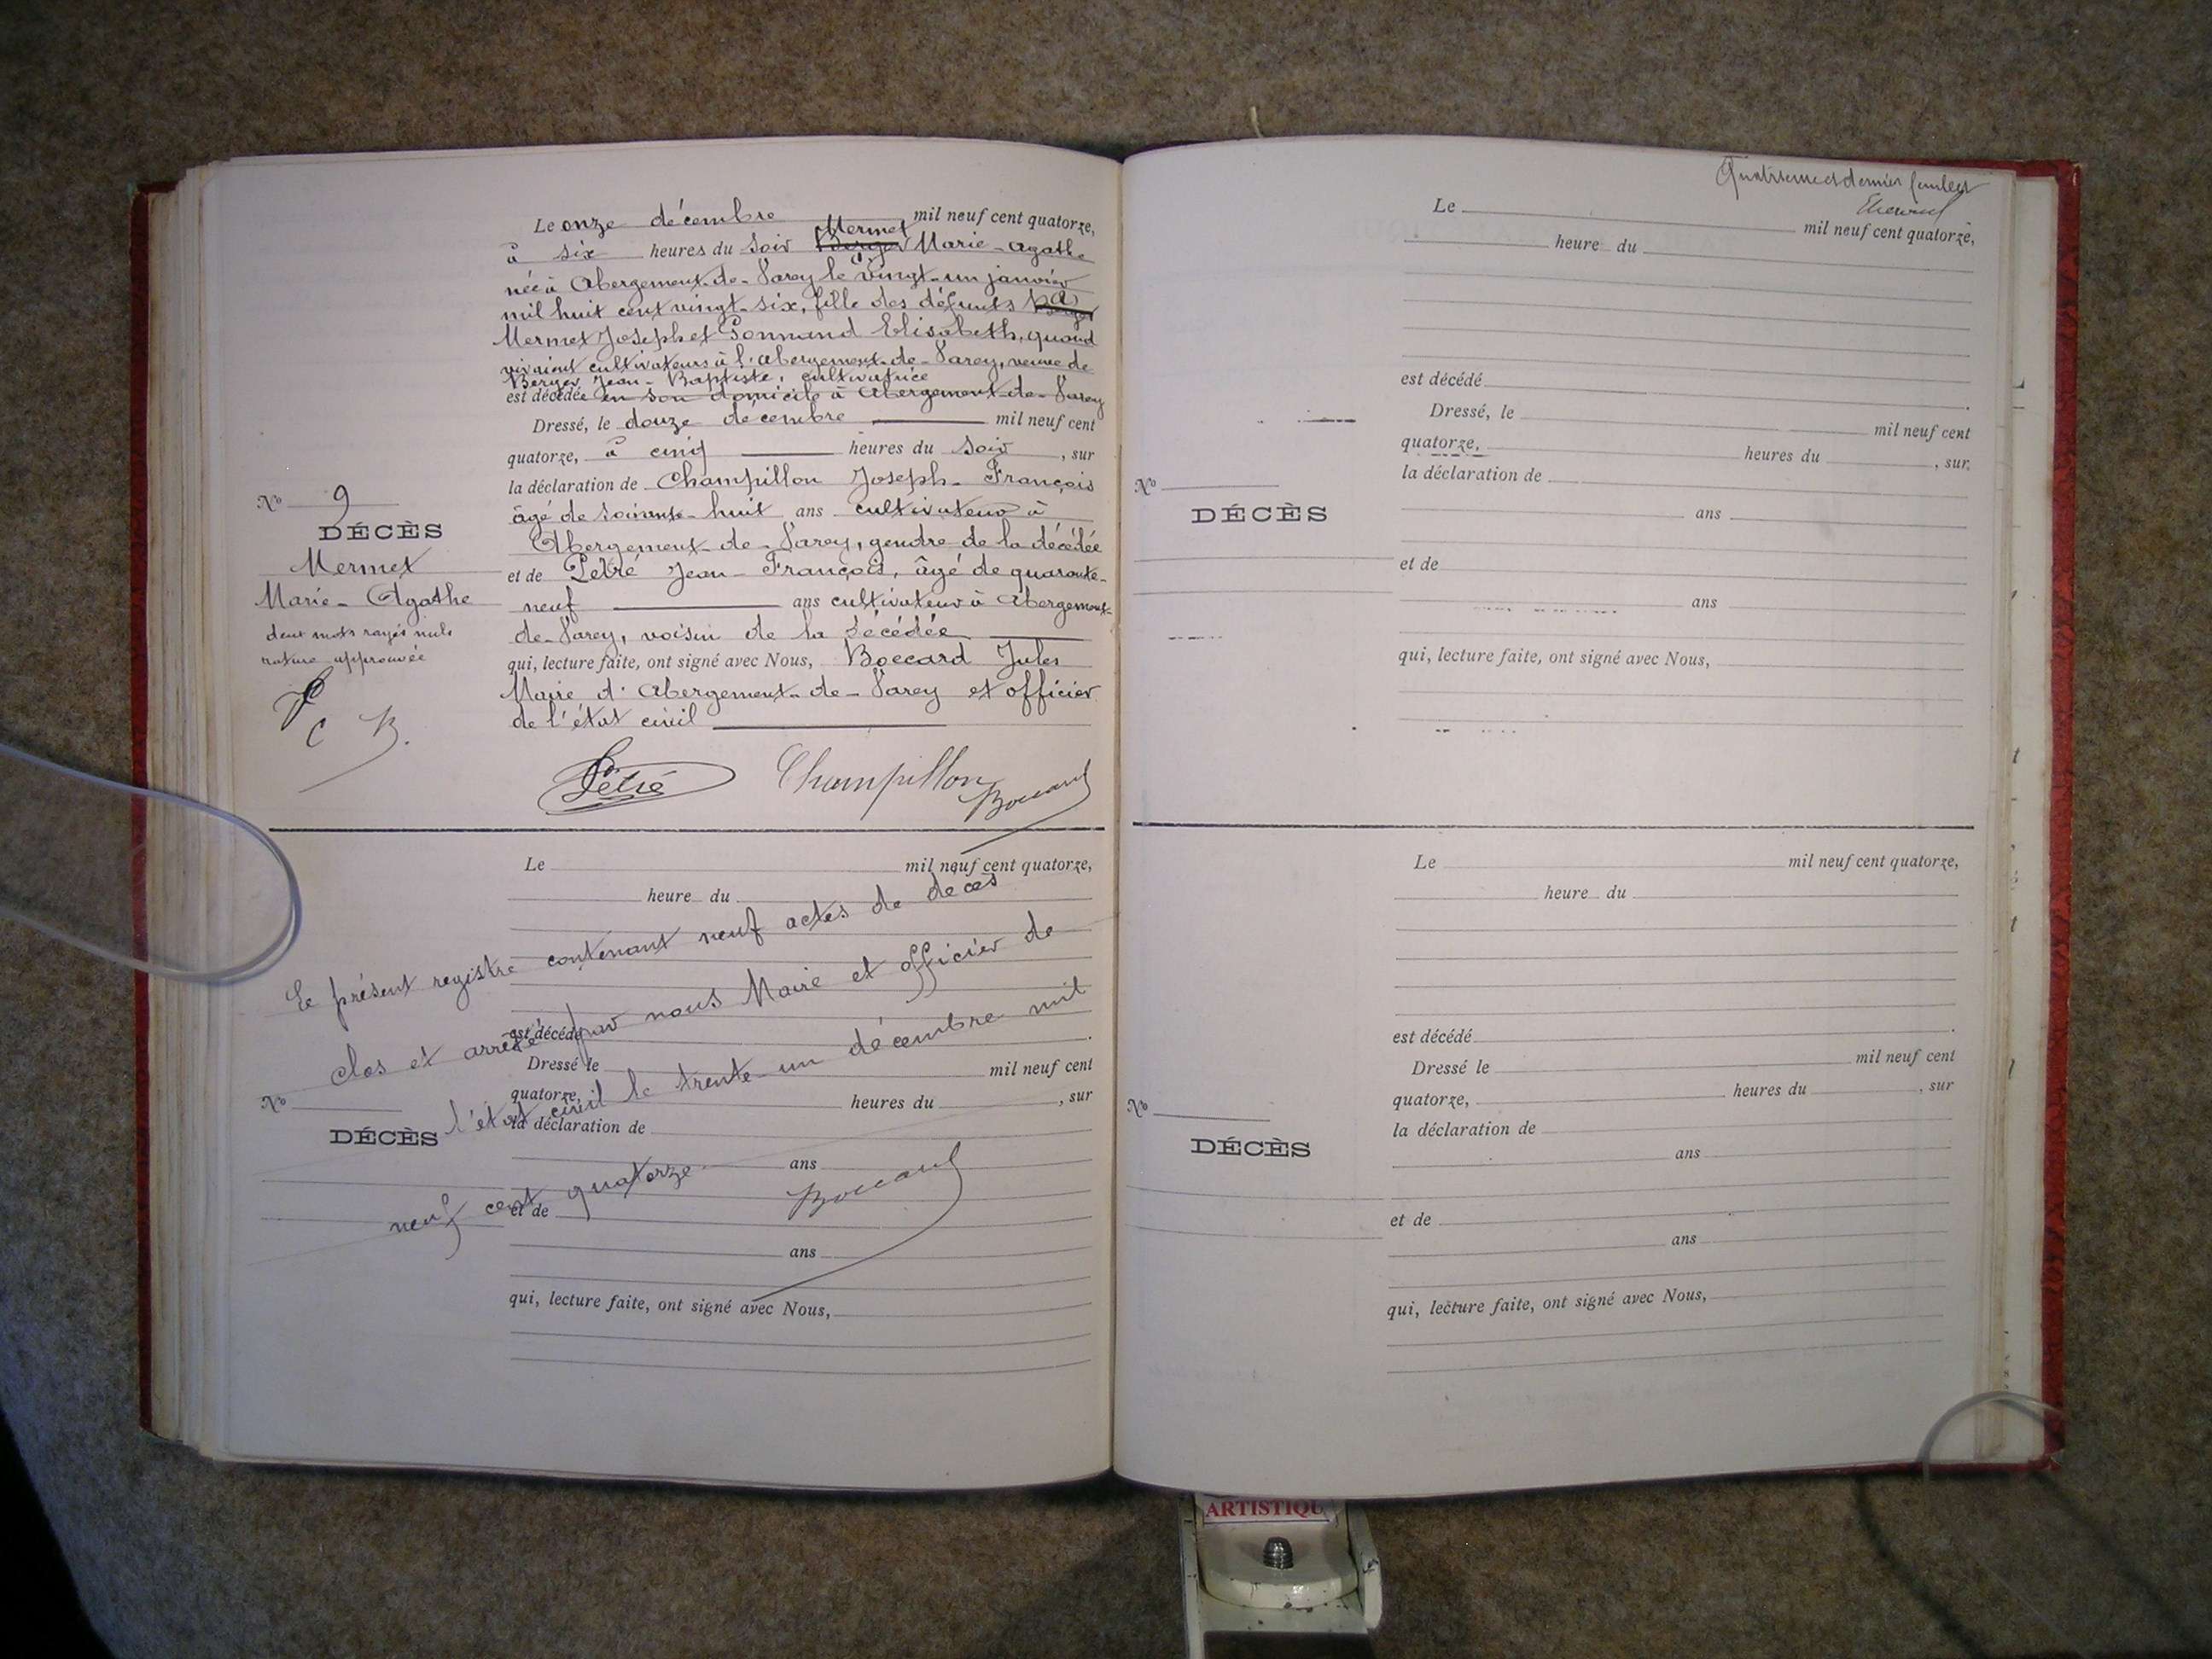 Le onze décembre mil neuf cent quatorze,
à six heures du soir Mermet Berger Marie-Agathe
née à Abergement-de-Varey le vingt-un janvier
mil huit cent vingt-six, fille des défunts Berger
Mermet Joseph et Gonnand Elisabeth, quand
vivaient cultivateurs à l'abergement-de-Varey, veuve de
Berger Jean-Baptiste, cultivatrice
est décédée en son domicile à Abergement-de-Varey
Dressé, le douze décembre mil neuf cent
quatorze, à cinq heures du soir, sur
la déclaration de Champillon Joseph-François
âgé de soixante-huit ans cultivateur à
Abergement-de-Varey, gendre de la décédée
et de Pétré Jean-François, âgé de quarante-
neuf ans cultivateur à Abergement-
de-Varey, voisin de la décédée
qui, lecture faite, ont signé avec Nous, Boccard Jules
Maire d'Abergement-de-Varey et officier
de l'état civil
No 9
DÉCÈS
Mermet
Marie-Agathe
deux mots rayés nuls
rature approuvée
P
C B.
Pétré Champillon Boccard
Le mil neuf cent quatorze,
heure du
est décédé
Dressé le mil neuf cent
quatorze, heures du , sur
la déclaration de
ans
et de
ans
qui, lecture faite, ont signé avec Nous,
No
DÉCÈS
Le présent registre contenant neuf actes de décès
clos et arrêté par nous Maire et officier de
l'état civil le trente-un décembre mil
neuf cent quatorze
Boccard
Quatrième et dernier feuillet
Le mil neuf cent quatorze,
heure du
est décédé
Dressé, le mil neuf cent
quatorze, heures du , sur
la déclaration de
ans
et de
ans
qui, lecture faite, ont signé avec Nous,
No
DÉCÈS
Le mil neuf cent quatorze,
heure du
est décédé
Dressé le mil neuf cent
quatorze, heures du , sur
la déclaration de
ans
et de
ans
qui, lecture faite, ont signé avec Nous,
No
DÉCÈS
ARTISTIQU